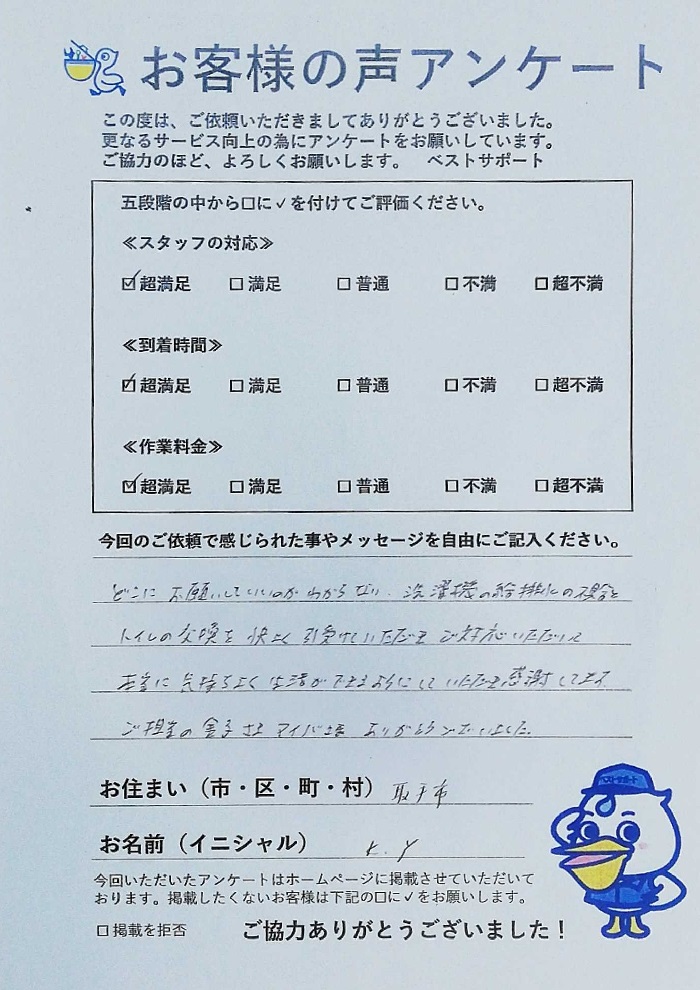 お客様の声アンケート
この度は、ご依頼いただきましてありがとうございました。
更なるサービス向上の為にアンケートをお願いしています。
ご協力のほど、よろしくお願いします。 ベストサポート
五段階の中から□に✓を付けてご評価ください。
≪スタッフの対応≫
☑超満足 □満足 □普通 □不満 □超不満
≪到着時間≫
☑超満足 □満足 □普通 □不満 □超不満
≪作業料金≫
☑超満足 □満足 □普通 □不満 □超不満
今回のご依頼で感じられた事やメッセージを自由にご記入ください。
どこにお願いしていいのかわからない、洗濯機の給排水の具合と
トイレの交換を快よく引受けていただきご対応いただいて
本当に気持ちよく生活ができるようにしていただき感謝してます
ご担当の金子さま マイバ様 ありがとうございました。
お住まい（市・区・町・村） 取手市
お名前（イニシャル） K.Y
今回いただいたアンケートはホームページに掲載させていただいて
おります。掲載したくないお客様は下記の□に✓をお願いします。
□掲載を拒否 ご協力ありがとうございました！
ベストサポート